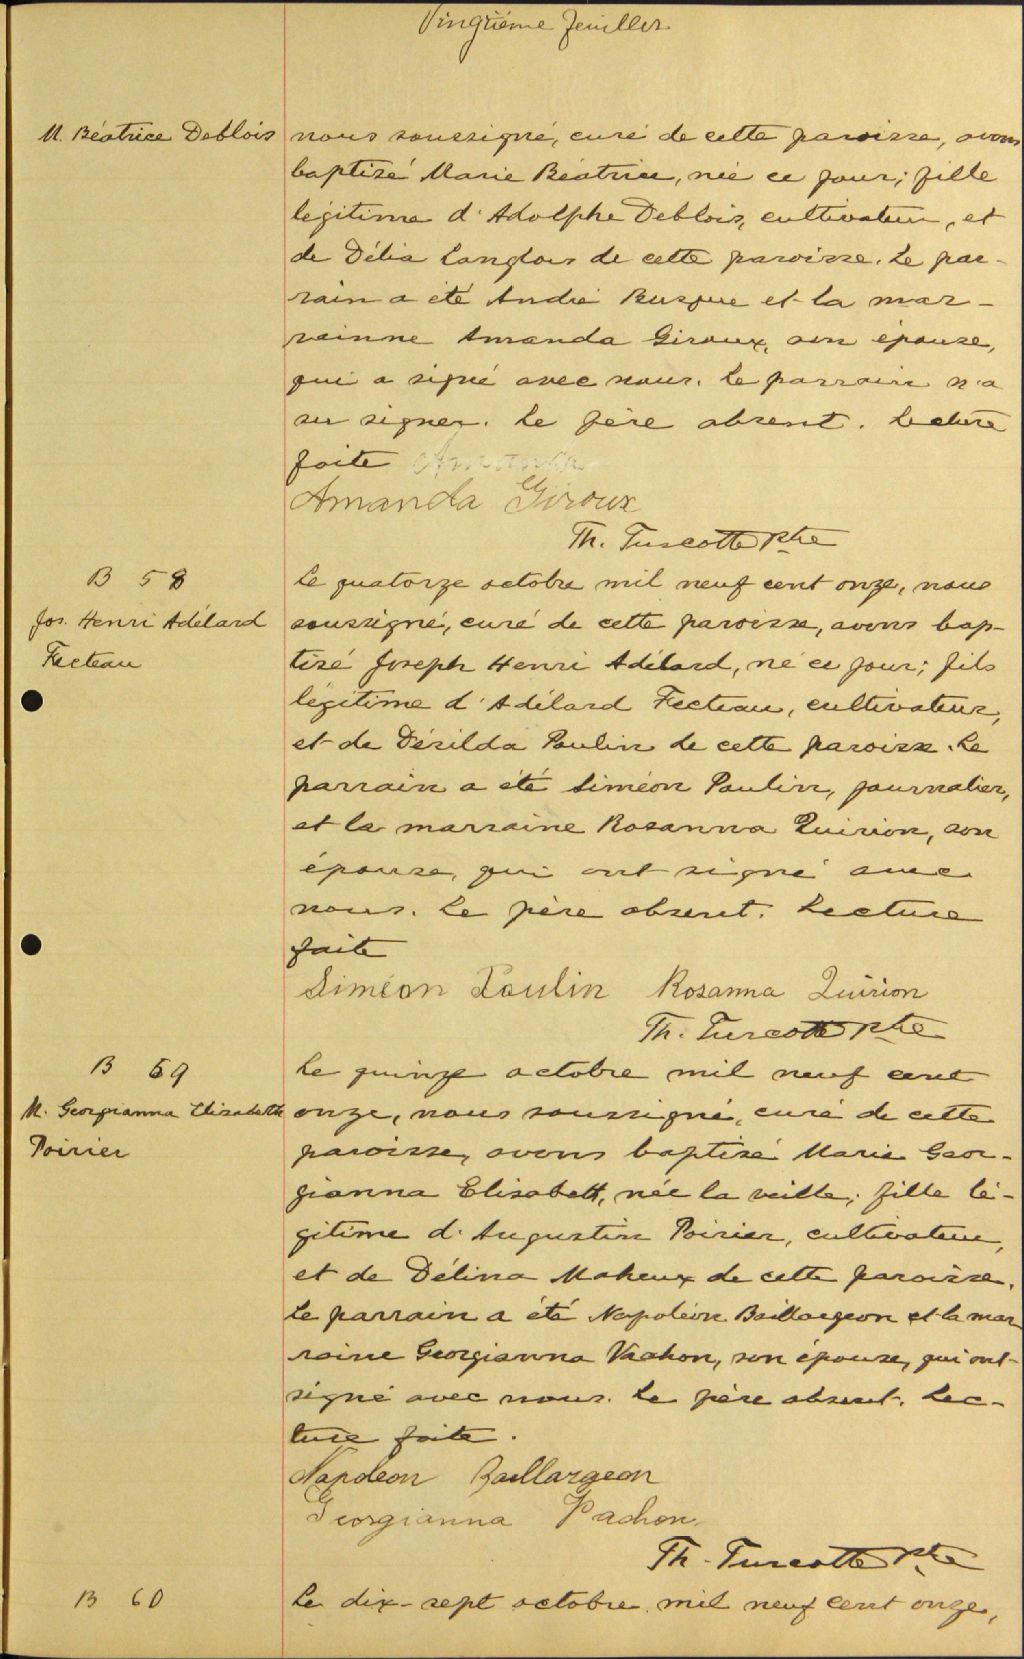 Vingtième feuillet
M. Béatrice Deblois
nous soussigné, curé de cette paroisse, avons
baptisé Marie Béatrice, née ce jour; fille
légitime d'Adolphe Deblois, cultivateur, et
de Délia Langlois de cette paroisse. Le par-
rain a été André Busque et la mar-
rainne Amanda Giroux, son épouse,
qui a signé avec nous. Le parrain n'a
su signer. Le père absent. Lecture
faite Amanda
Amanda Giroux
Th. Turcotte Ptre
B 58
Jos. Henri Adélard
Fecteau
Le quatorze octobre mil neuf cent onze, nous
soussigné, curé de cette paroisse, avons bap-
tisé Joseph Henri Adélard, né ce jour; fils
légitime d'Adélard Fecteau, cultivateur,
et de Désilda Poulin de cette paroisse. Le
parrain a été Siméon Poulin, journalier,
et la marraine Rosanna Quirion, son
épouse, qui ont signé avec
nous. Le père absent. Lecture
faite
Siméon Poulin Rosanna Quirion
Th. Turcotte Ptre
B 59
M. Georgianna Elisabeth
Poirier
Le quinze octobre mil neuf cent
onze, nous soussigné, curé de cette
paroisse, avons baptisé Marie Geor-
gianna Elisabeth, née la veille; fille lé-
gitime d'Augustin Poirier, cultivateur,
et de Délina Maheux de cette paroisse.
Le parrain a été Napoléon Baillargeon et la mar
raine Georgianna Vachon, son épouse, qui ont
signé avec nous. Le père absent. Lec-
ture faite.
Napoleon Baillargeon
Georgianna Vachon
Th. Turcotte Ptre
B 60
Le dix-sept octobre mil neuf cent onze,